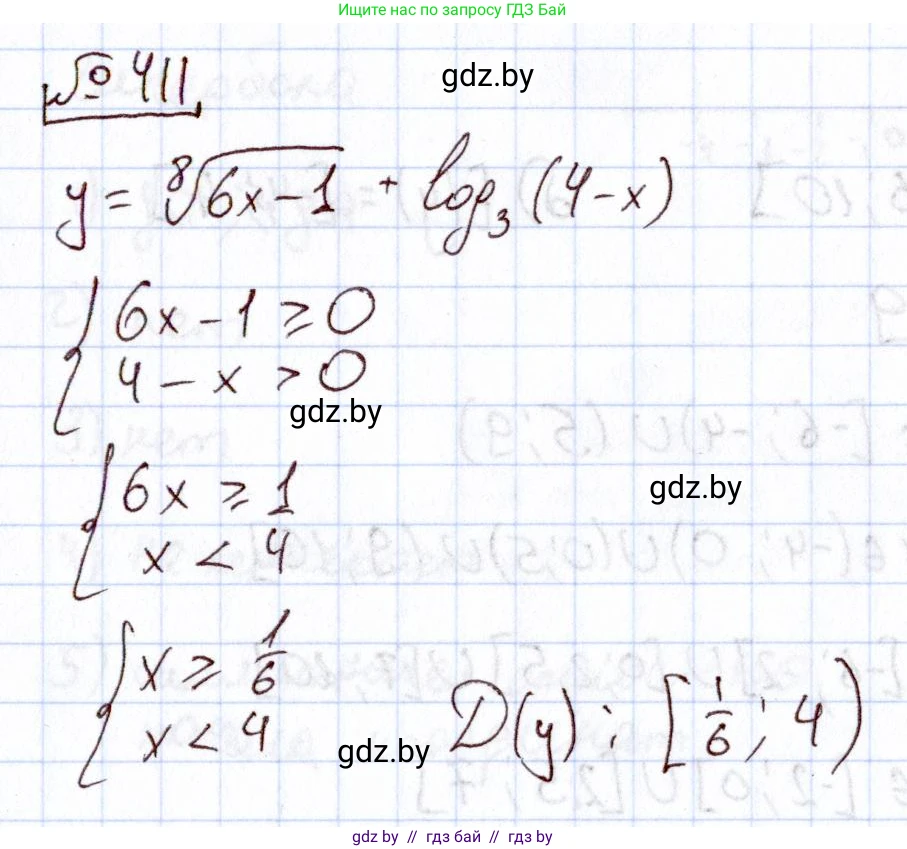 Ищите нас по запросу ГДЗ Бай
№ 411
gdz.by
y = ⁸√(6x - 1) + log₃(4 - x)
{ 6x - 1 ≥ 0
4 - x > 0
gdz.by
{ 6x ≥ 1
x < 4
gdz.by
{ x ≥ 1/6
x < 4
D(y): [1/6; 4)
gdz.by
gdz.by // гдз бай // гдз by